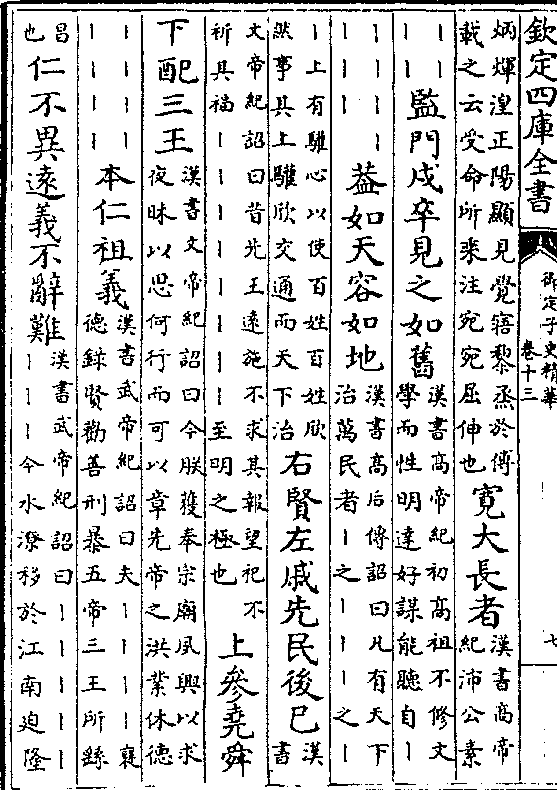 欽定四庫全書
御定子史精華
卷十三
七
炳煇湟正陽顯見覺寤黎烝於傳
載之云受命所乘注宛宛屈伸也
寛大長者
漢書高帝
紀沛公素
｜｜
｜｜
監門戍卒見之如舊
漢書高帝紀初高祖不修文
學而性明達好謀能聽自｜｜
｜｜｜｜
｜｜｜｜
葢如天容如地
漢書高后傳詔曰凡有天下
治萬民者｜之｜｜｜之｜
｜上有驩心以使百姓百姓欣
然事其上驩欣交通而天下治
右賢左戚先民後已
漢
書
文帝紀詔曰昔先王遠施不求其報望祀不
祈其福｜｜｜｜｜｜｜｜至明之極也
上參堯舜
下配三王
漢書文帝紀詔曰今朕獲奉宗廟夙興以求
夜昧以思何行而可以章先帝之洪業休德
｜｜｜｜
｜｜｜｜
本仁祖義
漢書武帝紀詔曰夫｜｜｜｜襃
德錄賢勸善刑暴五帝三王所繇
昌
也
仁不異遠義不辭難
漢書武帝紀詔曰｜｜｜｜｜
｜｜｜今水潦移於江南迫隆